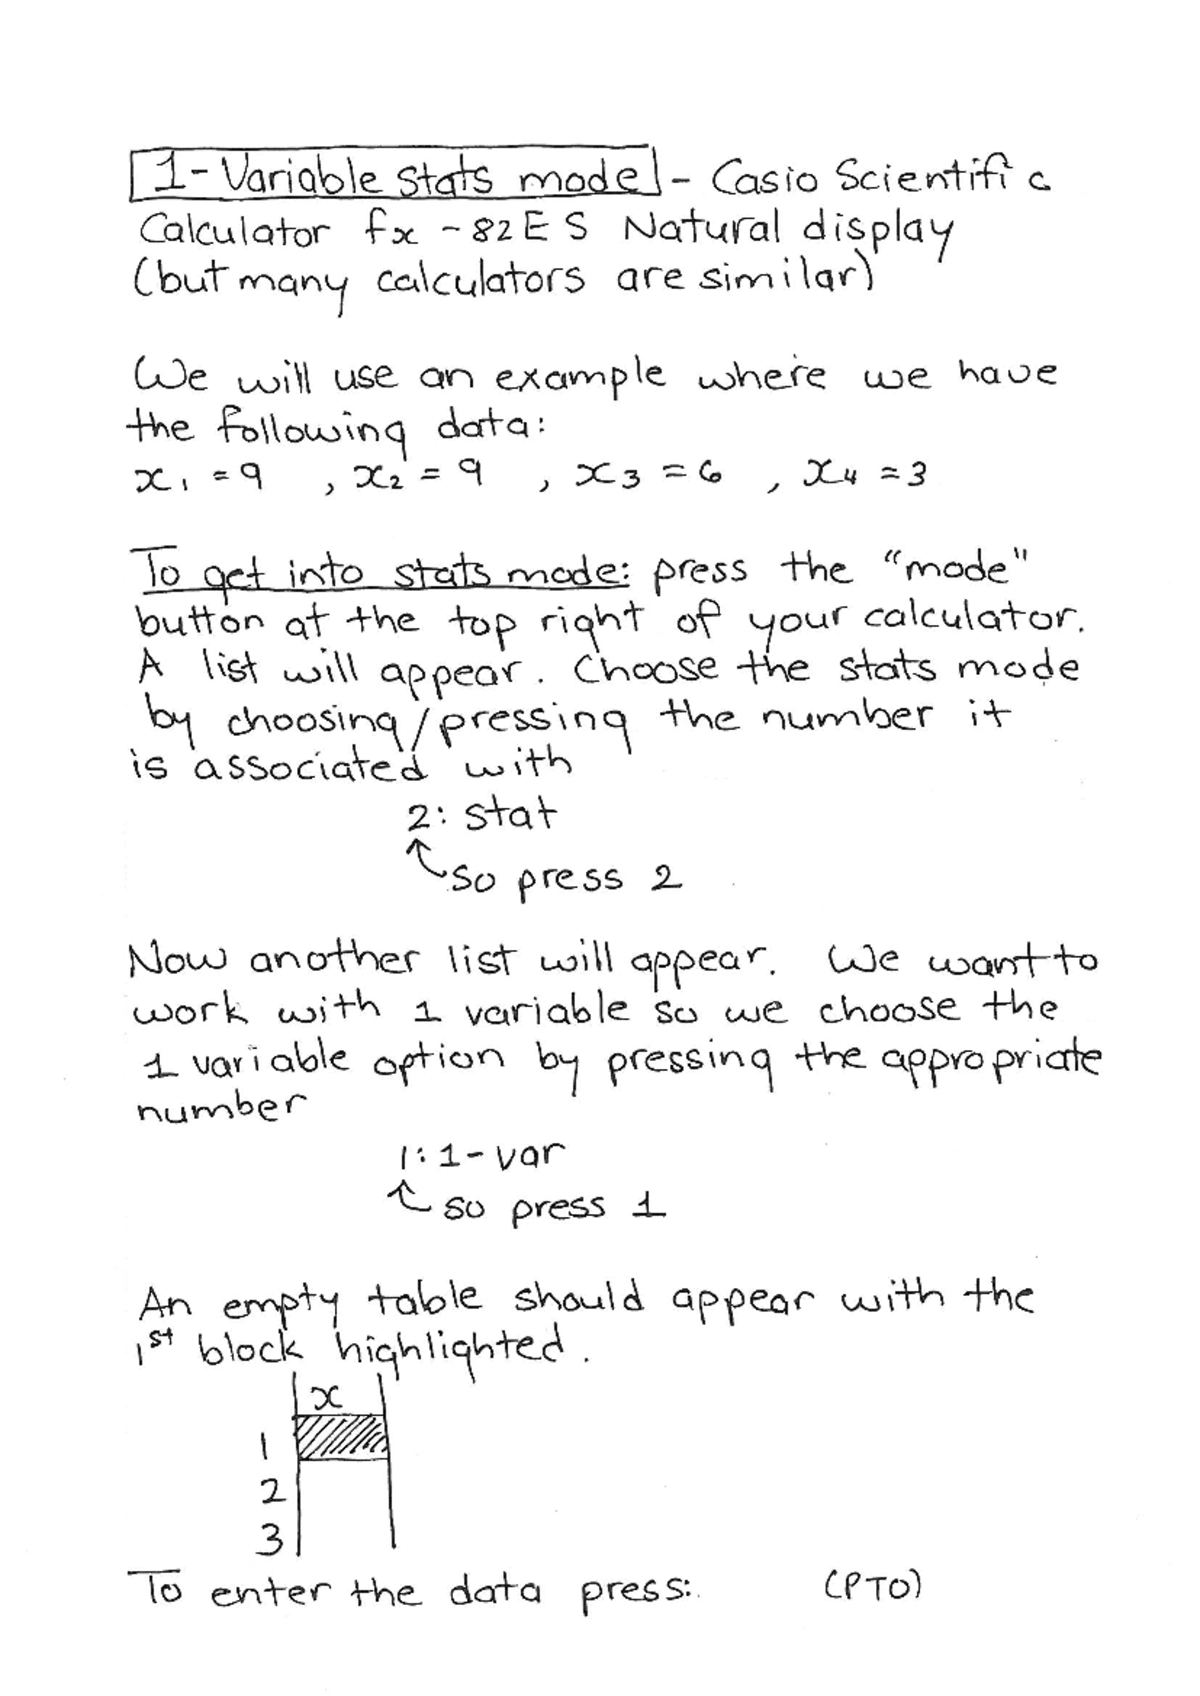 1-Variable stats mode - Casio Scientific
Calculator fx -82ES Natural display
(but many calculators are similar)
We will use an example where we have
the following data:
x₁ = 9 , x₂ = 9 , x₃ = 6 , x₄ = 3
To get into stats mode: press the "mode"
button at the top right of your calculator.
A list will appear. Choose the stats mode
by choosing/pressing the number it
is associated with
2: stat
↑ so press 2
Now another list will appear. We want to
work with 1 variable so we choose the
1 variable option by pressing the appropriate
number
1: 1-var
↑ so press 1
An empty table should appear with the
1st block highlighted.
x
1
2
3
To enter the data press: (PTO)